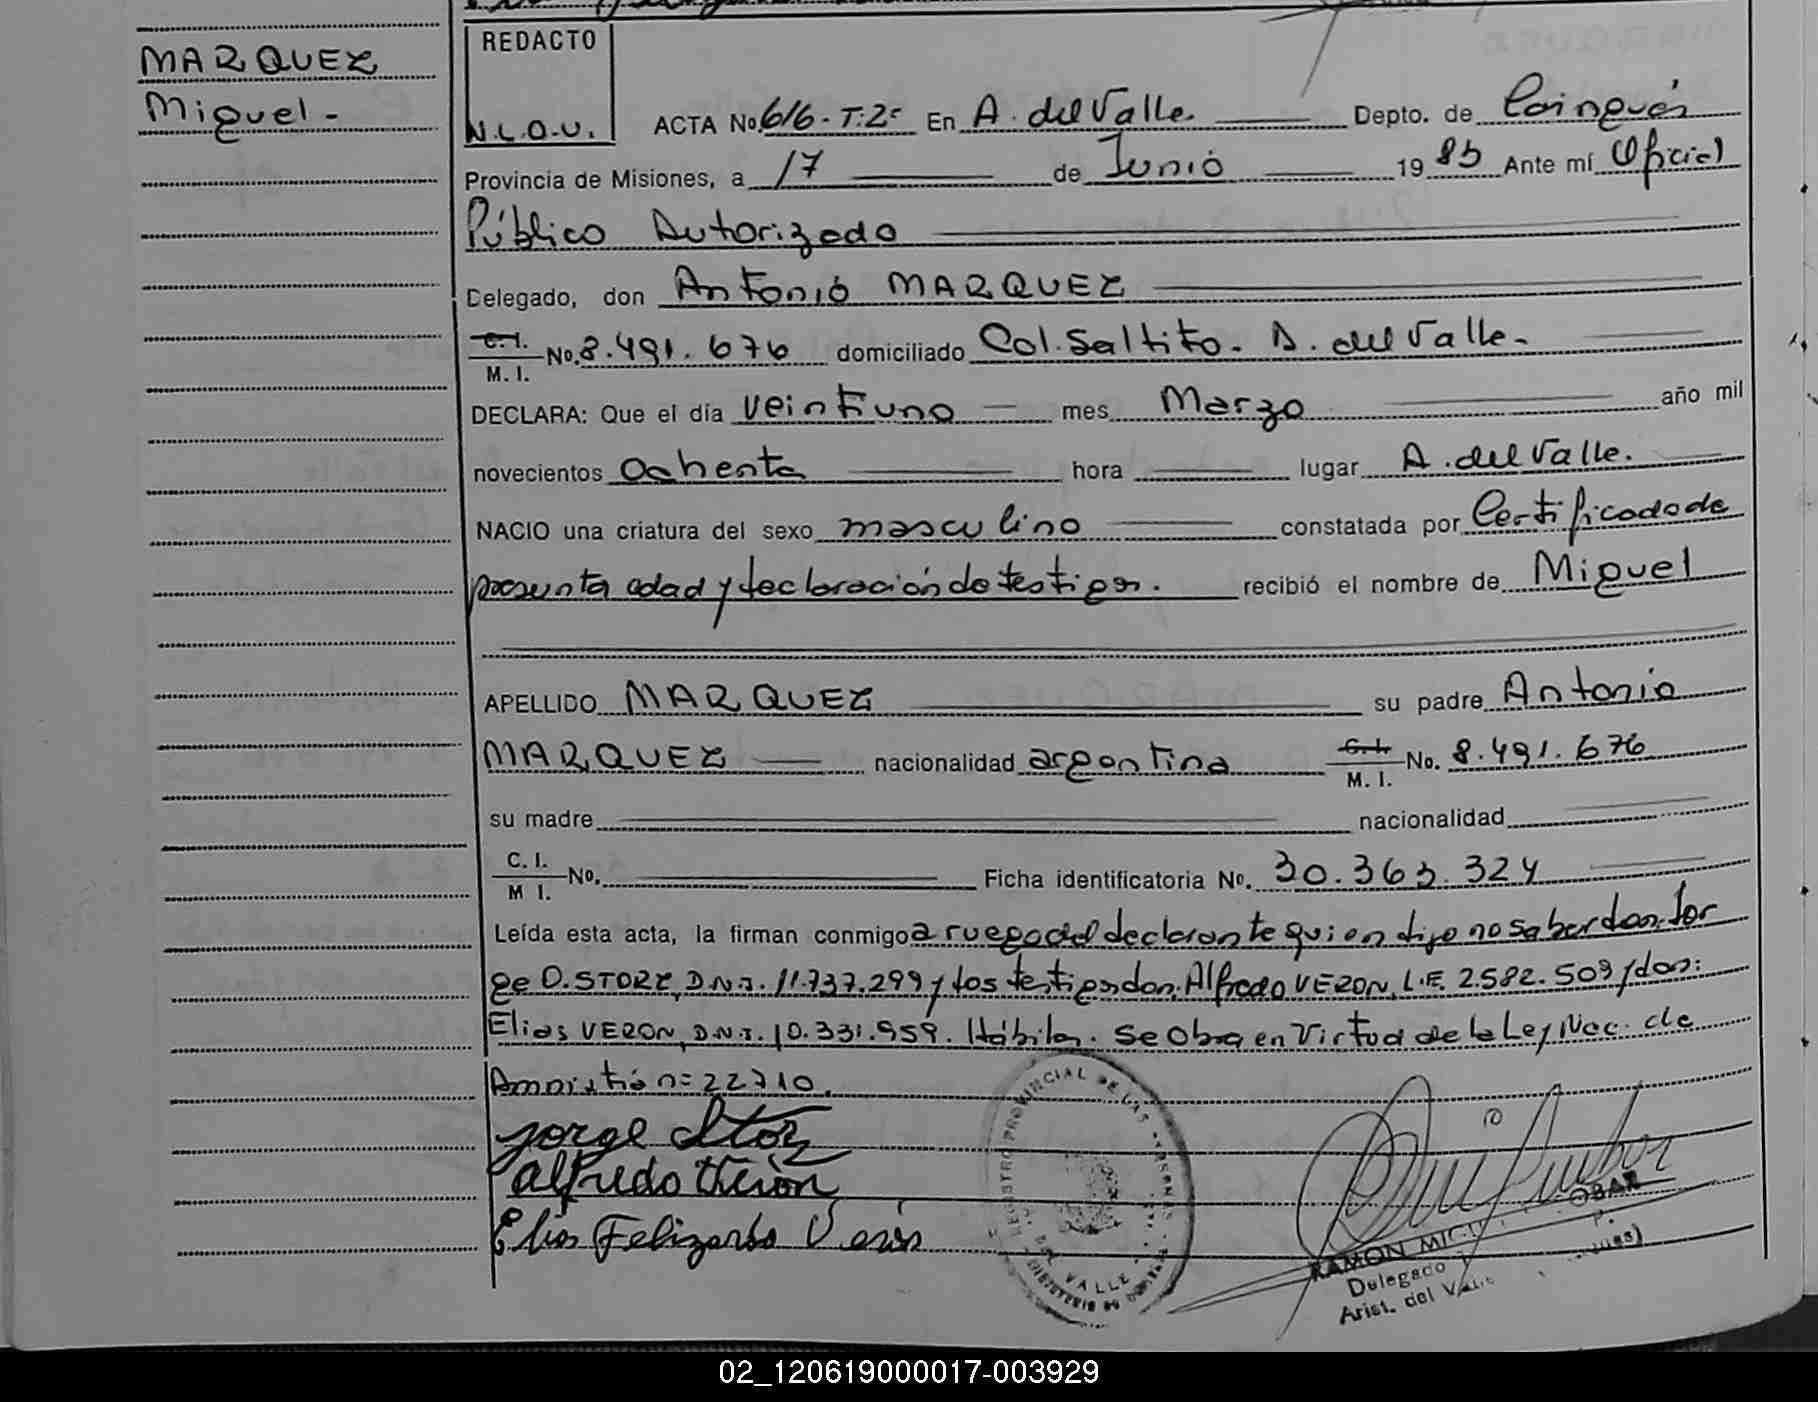 MARQUEZ
Miguel-
REDACTO
N.L.O.U.
ACTA No. 616-T:2º En A. del Valle. Depto. de Cainguás
Provincia de Misiones, a 17 de Junio 1985 Ante mí Oficial
Público Autorizado
Delegado, don Antonio MARQUEZ
C.I. / M. I. No. 8.491.676 domiciliado Col. Saltito. A. del Valle.
DECLARA: Que el día veintiuno mes Marzo año mil
novecientos ochenta hora lugar A. del Valle.
NACIO una criatura del sexo masculino constatada por Certificado de
presunta edad y declaración de testigos. recibió el nombre de Miguel
APELLIDO MARQUEZ su padre Antonio
MARQUEZ nacionalidad argentina C.I. / M. I. No. 8.491.676
su madre nacionalidad
C. I. / M I. No. Ficha identificatoria No. 30.363.324
Leída esta acta, la firman conmigo a ruego del declarante quien dijo no saber don: Jor
ge O. STORZ, D.N.I. 11.737.299 y los testigos don: Alfredo VERON, L.E. 2.582.509 y don:
Elias VERON, D.N.I. 10.331.959. Hábiles. Se Obra en Virtud de la Ley Nac. de
Amnistía n= 22710.
Jorge Storz
alfredo Verón
Elias Felizardo Verón
REGISTRO PROVINCIAL DE LAS PERSONAS
DEL VALLE
RAMON MIGUEL OBAR
Delegado
Arist. del Valle
02_120619000017-003929